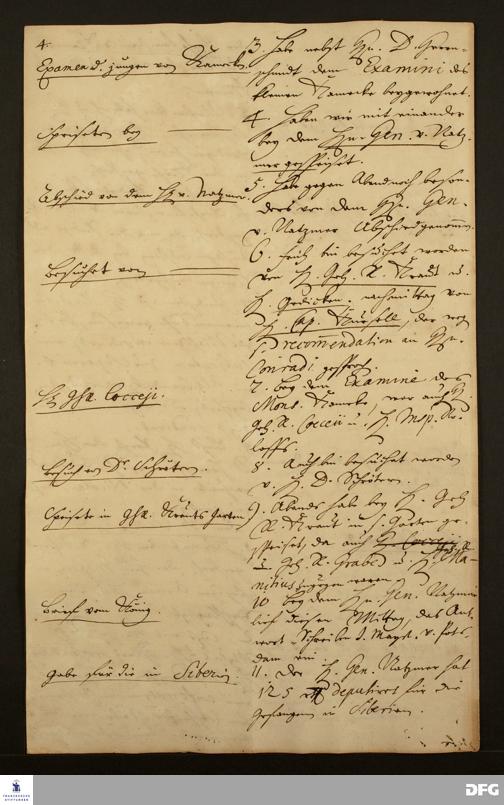 4.
Examen d. jungen von Kameck.
speiseten bey
Abschied von dem H. v. Natzmer.
besuchet von
H. GhR. Cocceji.
besuch von Dr. Schröter.
Speisete in GhR. Krauts Garten
brief vom König.
gabe für die in Siberien.
3. habe nebst Hn. D.
schmidt dem Examini des
kleinen Kamecke beygewohnet.
4. haben wir mit einander
bey dem Hn. Gen. v. Natz-
mer gespeiset.
5. habe gegen Abend noch beson-
ders von dem Hn. Gen.
v. Natzmer Abschied genommen.
6. früh bin besuchet worden
von H. Geh. R. Kraut u.
H. Gedicken. nachmittag von
H. Cap. der weg.
recommendation an Hn.
Conradi gesproch.
7. bey dem Examine des
Mons. Kamecke, war auch H.
Geh. R. Cocceii u. H. Insp. Ro-
loffs.
8. Auch bin besuchet worden
v. H. D. Schrötern.
9. Abends hab bey H. Geh.
R. Kraut in s. Garten ge-
speiset, da auch H. Cocceji
u. Geh. R. Grabe u. H. Ma-
nitius zugegen waren.
10. bey dem Hn. Gen. Natzmer
lief diesen Mittag, das Ant-
wort Schreiben S. Mayst. v. Pots-
dam ein.
11. der H. Gen. Natzmer hat
125 deputiret für die
Gefangene in Siberien.
FRANCKESCHE STIFTUNGEN
DFG